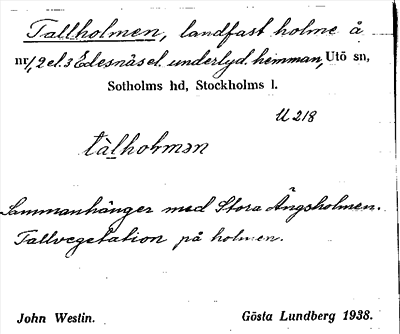 Tallholmen, landfast holme å
nr 1, 2 el. 3 Edesnäs el. underlyd. hemman, Utö sn,
Sotholms hd, Stockholms l.
U 218
tàlholmən
Sammanhänger med Stora Ängsholmen.
Tallvegetation på holmen.
John Westin. Gösta Lundberg 1938.